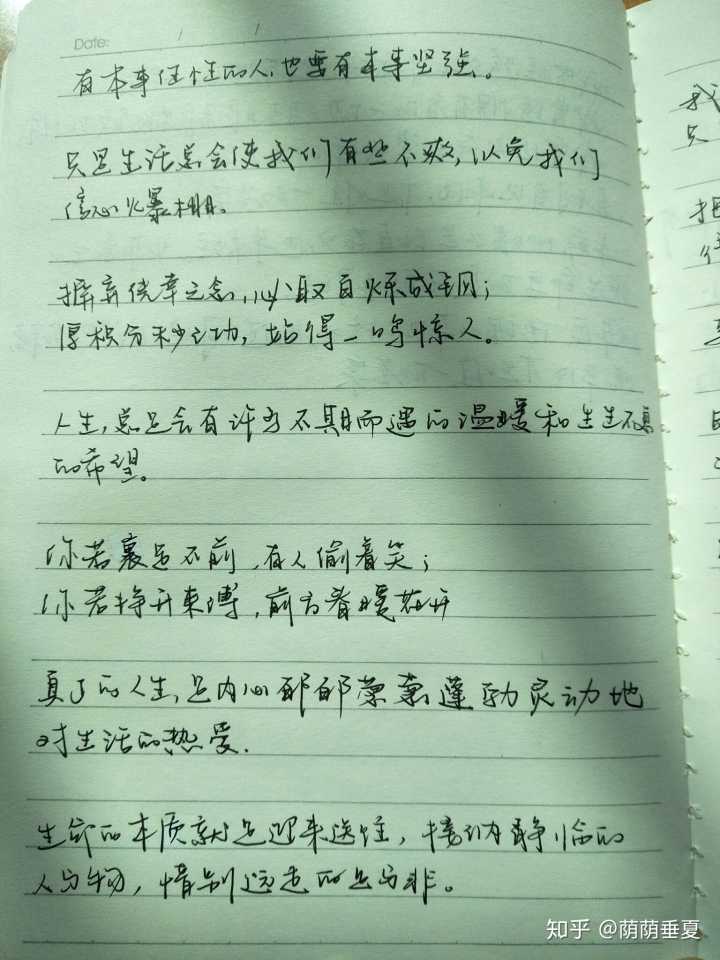 Date: / /
有本事任性的人,也要有本事坚强。
只是生活总会使我们有些不爽,以免我们
信心爆棚。
摒弃侥幸之念,必取百炼成钢;
厚积分秒之功,始得一鸣惊人。
人生,总是会有许多不期而遇的温暖和生生不息
的希望。
你若裹足不前,有人偷着笑;
你若挣开束缚,前方春暖花开
真正的人生,是内心郁郁蓬勃灵动地
对生活的热爱.
生命的本质就是迎来送往,接纳静临的
人与物,惜别远去的是与非。
我
只
知乎 @荫荫垂夏